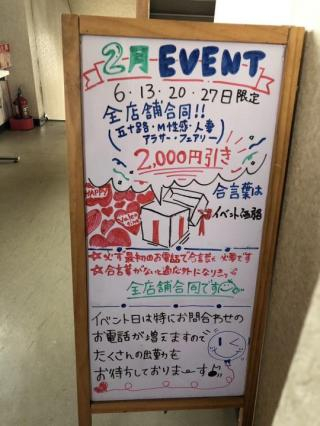 2月 EVENT
6・13・20・27日限定
全店舗合同!!
(五十路・M性感・人妻
アラサー・フェアリー)
2,000円引き
合言葉は
イベント価格
HAPPY
Valentine
☆必ず最初のお電話で合言葉が必要です
☆合言葉がないと適応外になります
全店舗合同です
イベント日は特にお問合わせの
お電話が増えますので
たくさんの出勤を
お待ちしておりまーす♪